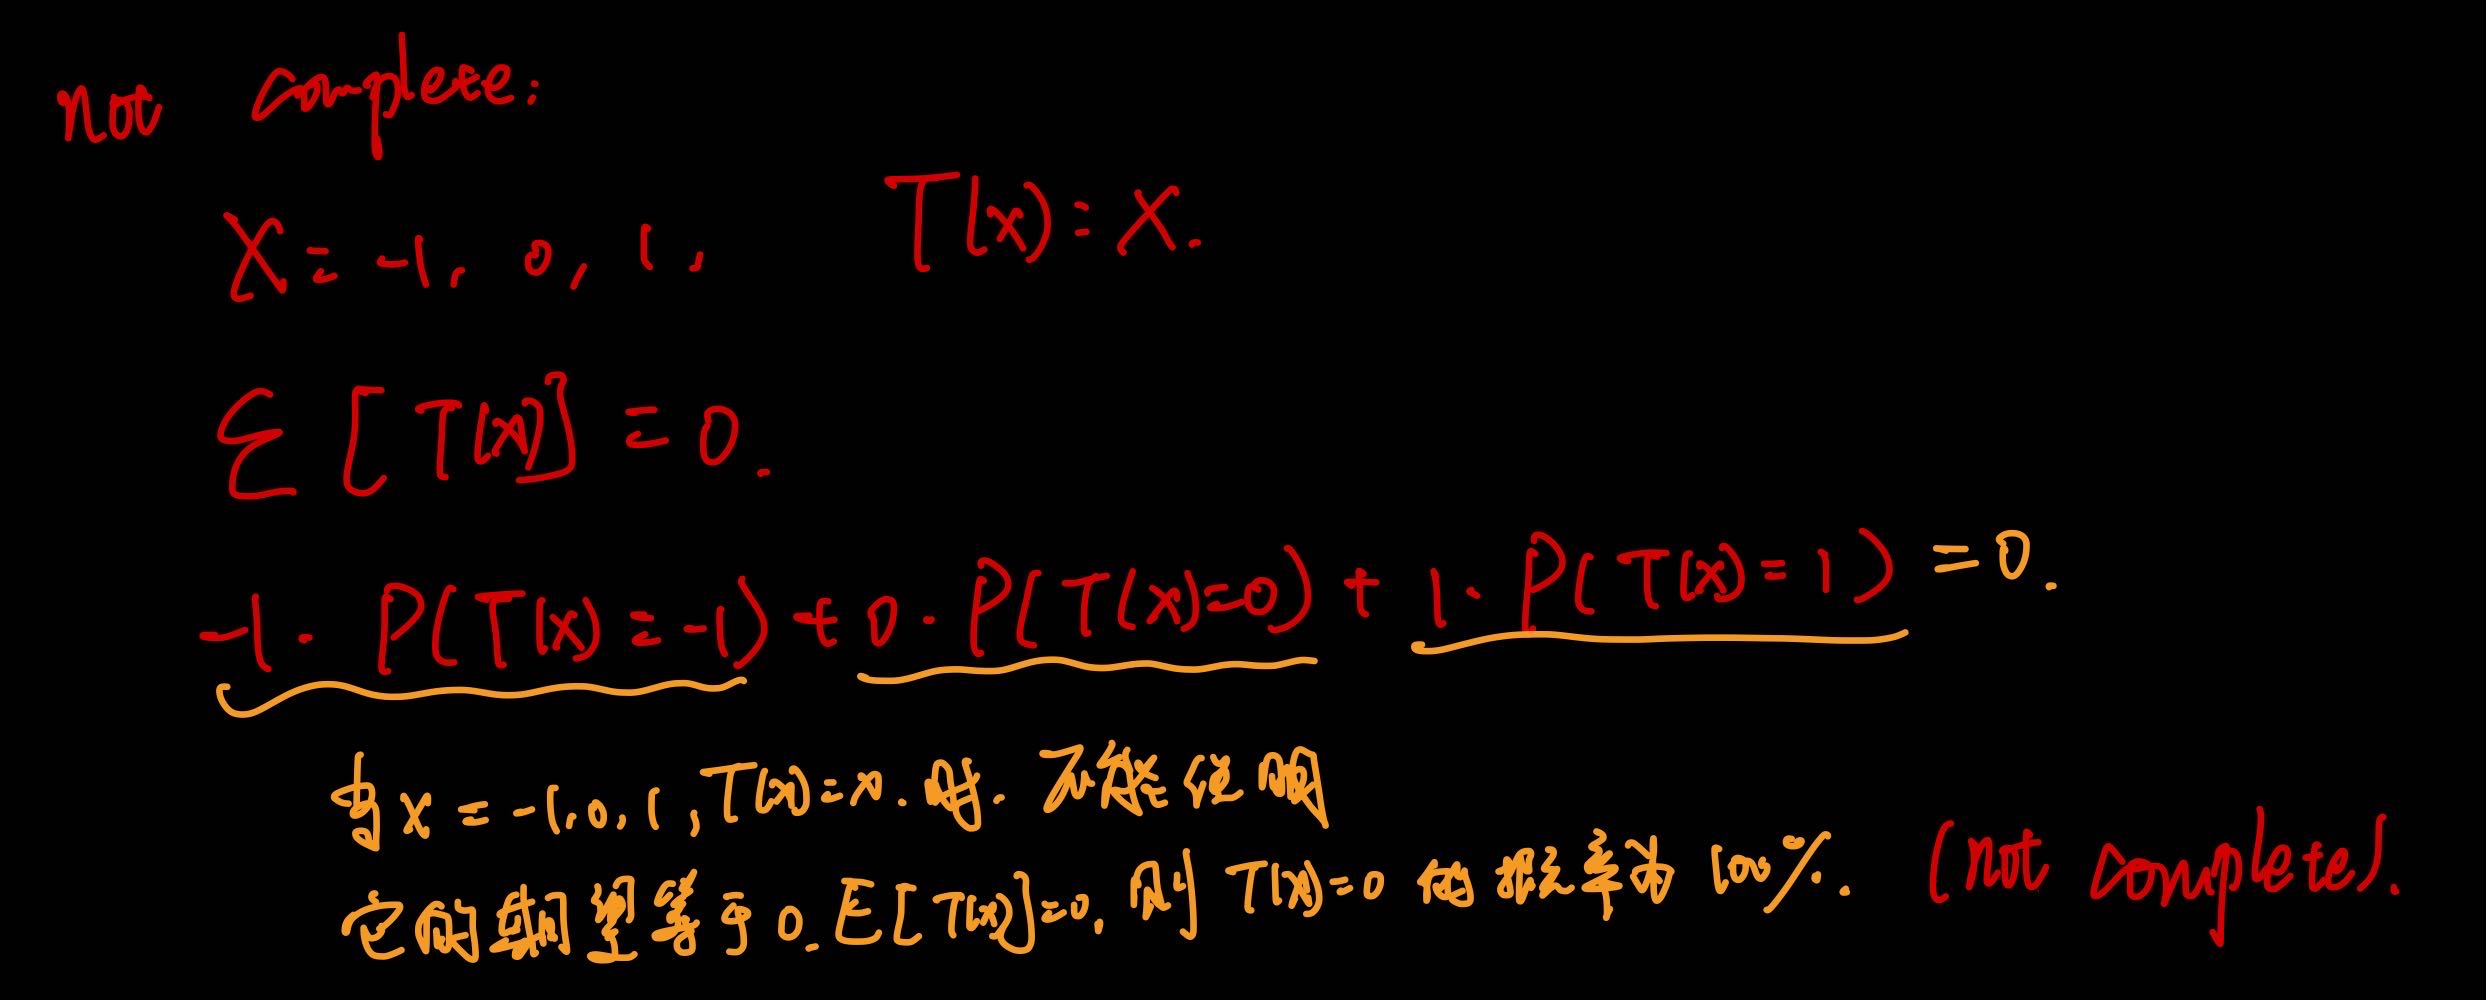 not complete:
X = -1, 0, 1, T(x) = X.
E [T(x)] = 0.
-1 · P(T(x) = -1) + 0 · P(T(x)=0) + 1 · P(T(x) = 1) = 0.
当 x = -1, 0, 1, T(x) = x. 时. 不能说明
它的期望等于 0. E[T(x)]=0, 则 T(x)=0 的概率为 100%. (not complete).